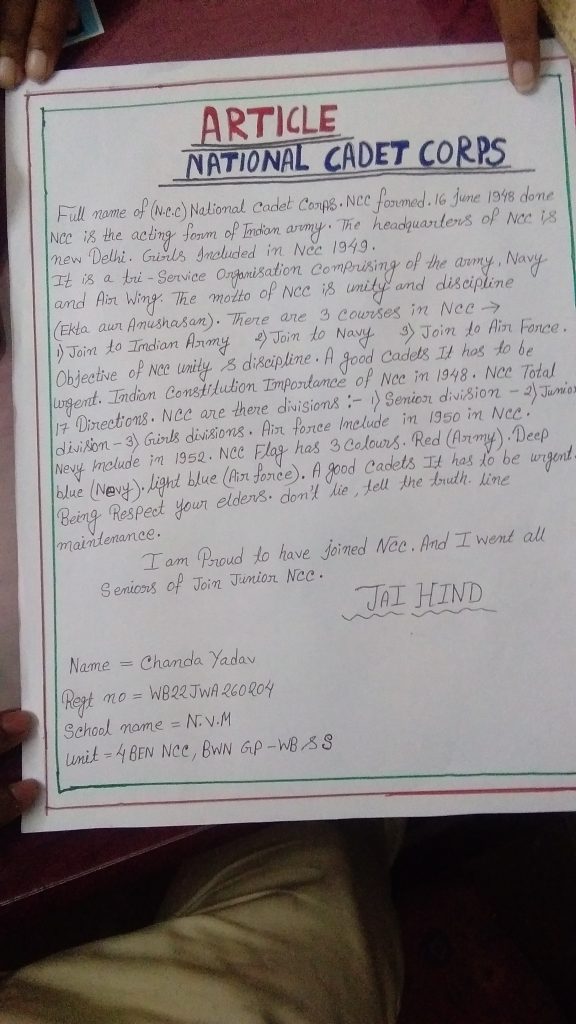 ARTICLE
NATIONAL CADET CORPS
Full name of (N.C.C) National Cadet Corps. NCC formed. 16 June 1948 done
NCC is the acting form of Indian army. The headquarters of NCC is
new Delhi. Girls Included in NCC 1949.
It is a tri-Service Organisation comprising of the army, Navy
and Air Wing. The motto of NCC is unity and discipline
(Ekta aur Anushasan). There are 3 courses in NCC →
1) Join to Indian Army 2) Join to Navy 3) Join to Air Force.
Objective of NCC unity & discipline. A good Cadets It has to be
urgent. Indian Constitution Importance of NCC in 1948. NCC Total
17 Directions. NCC are there divisions :- 1) Senior division - 2) Junior
division - 3) Girls divisions. Air force Include in 1950 in NCC.
Nevy Include in 1952. NCC Flag has 3 Colours. Red (Army). Deep
blue (Navy). light blue (Air force). A good Cadets It has to be urgent.
Being Respect your elders. don't lie, tell the truth. line
maintenance.
I am Proud to have joined NCC. And I went all
Seniors of Join Junior NCC.
JAI HIND
Name = Chanda Yadav
Regt no = WB22JWA260204
School name = N.V.M
Unit = 4 BEN NCC, BWN GP - WB & S